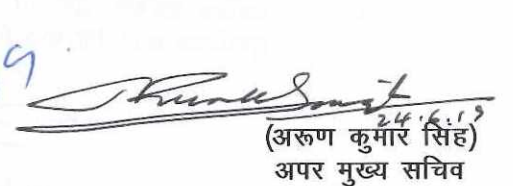 24.6.19
(अरूण कुमार सिंह)
अपर मुख्य सचिव